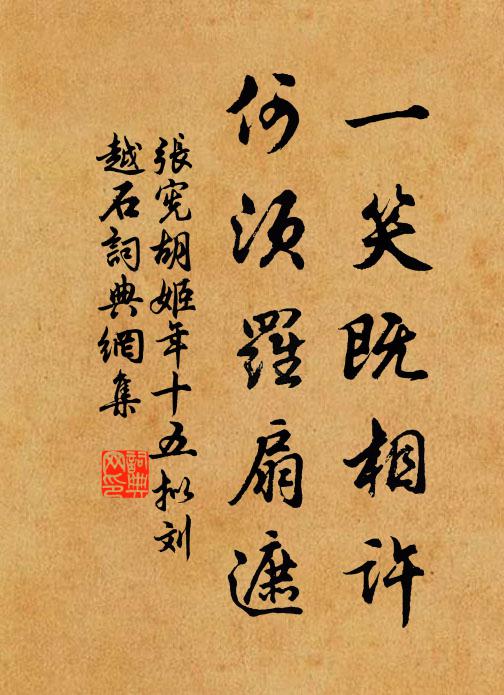 一笑既相许
何须羅扇遮
張宪胡姬年十五拟刘
越石詞典網集
詞典网印